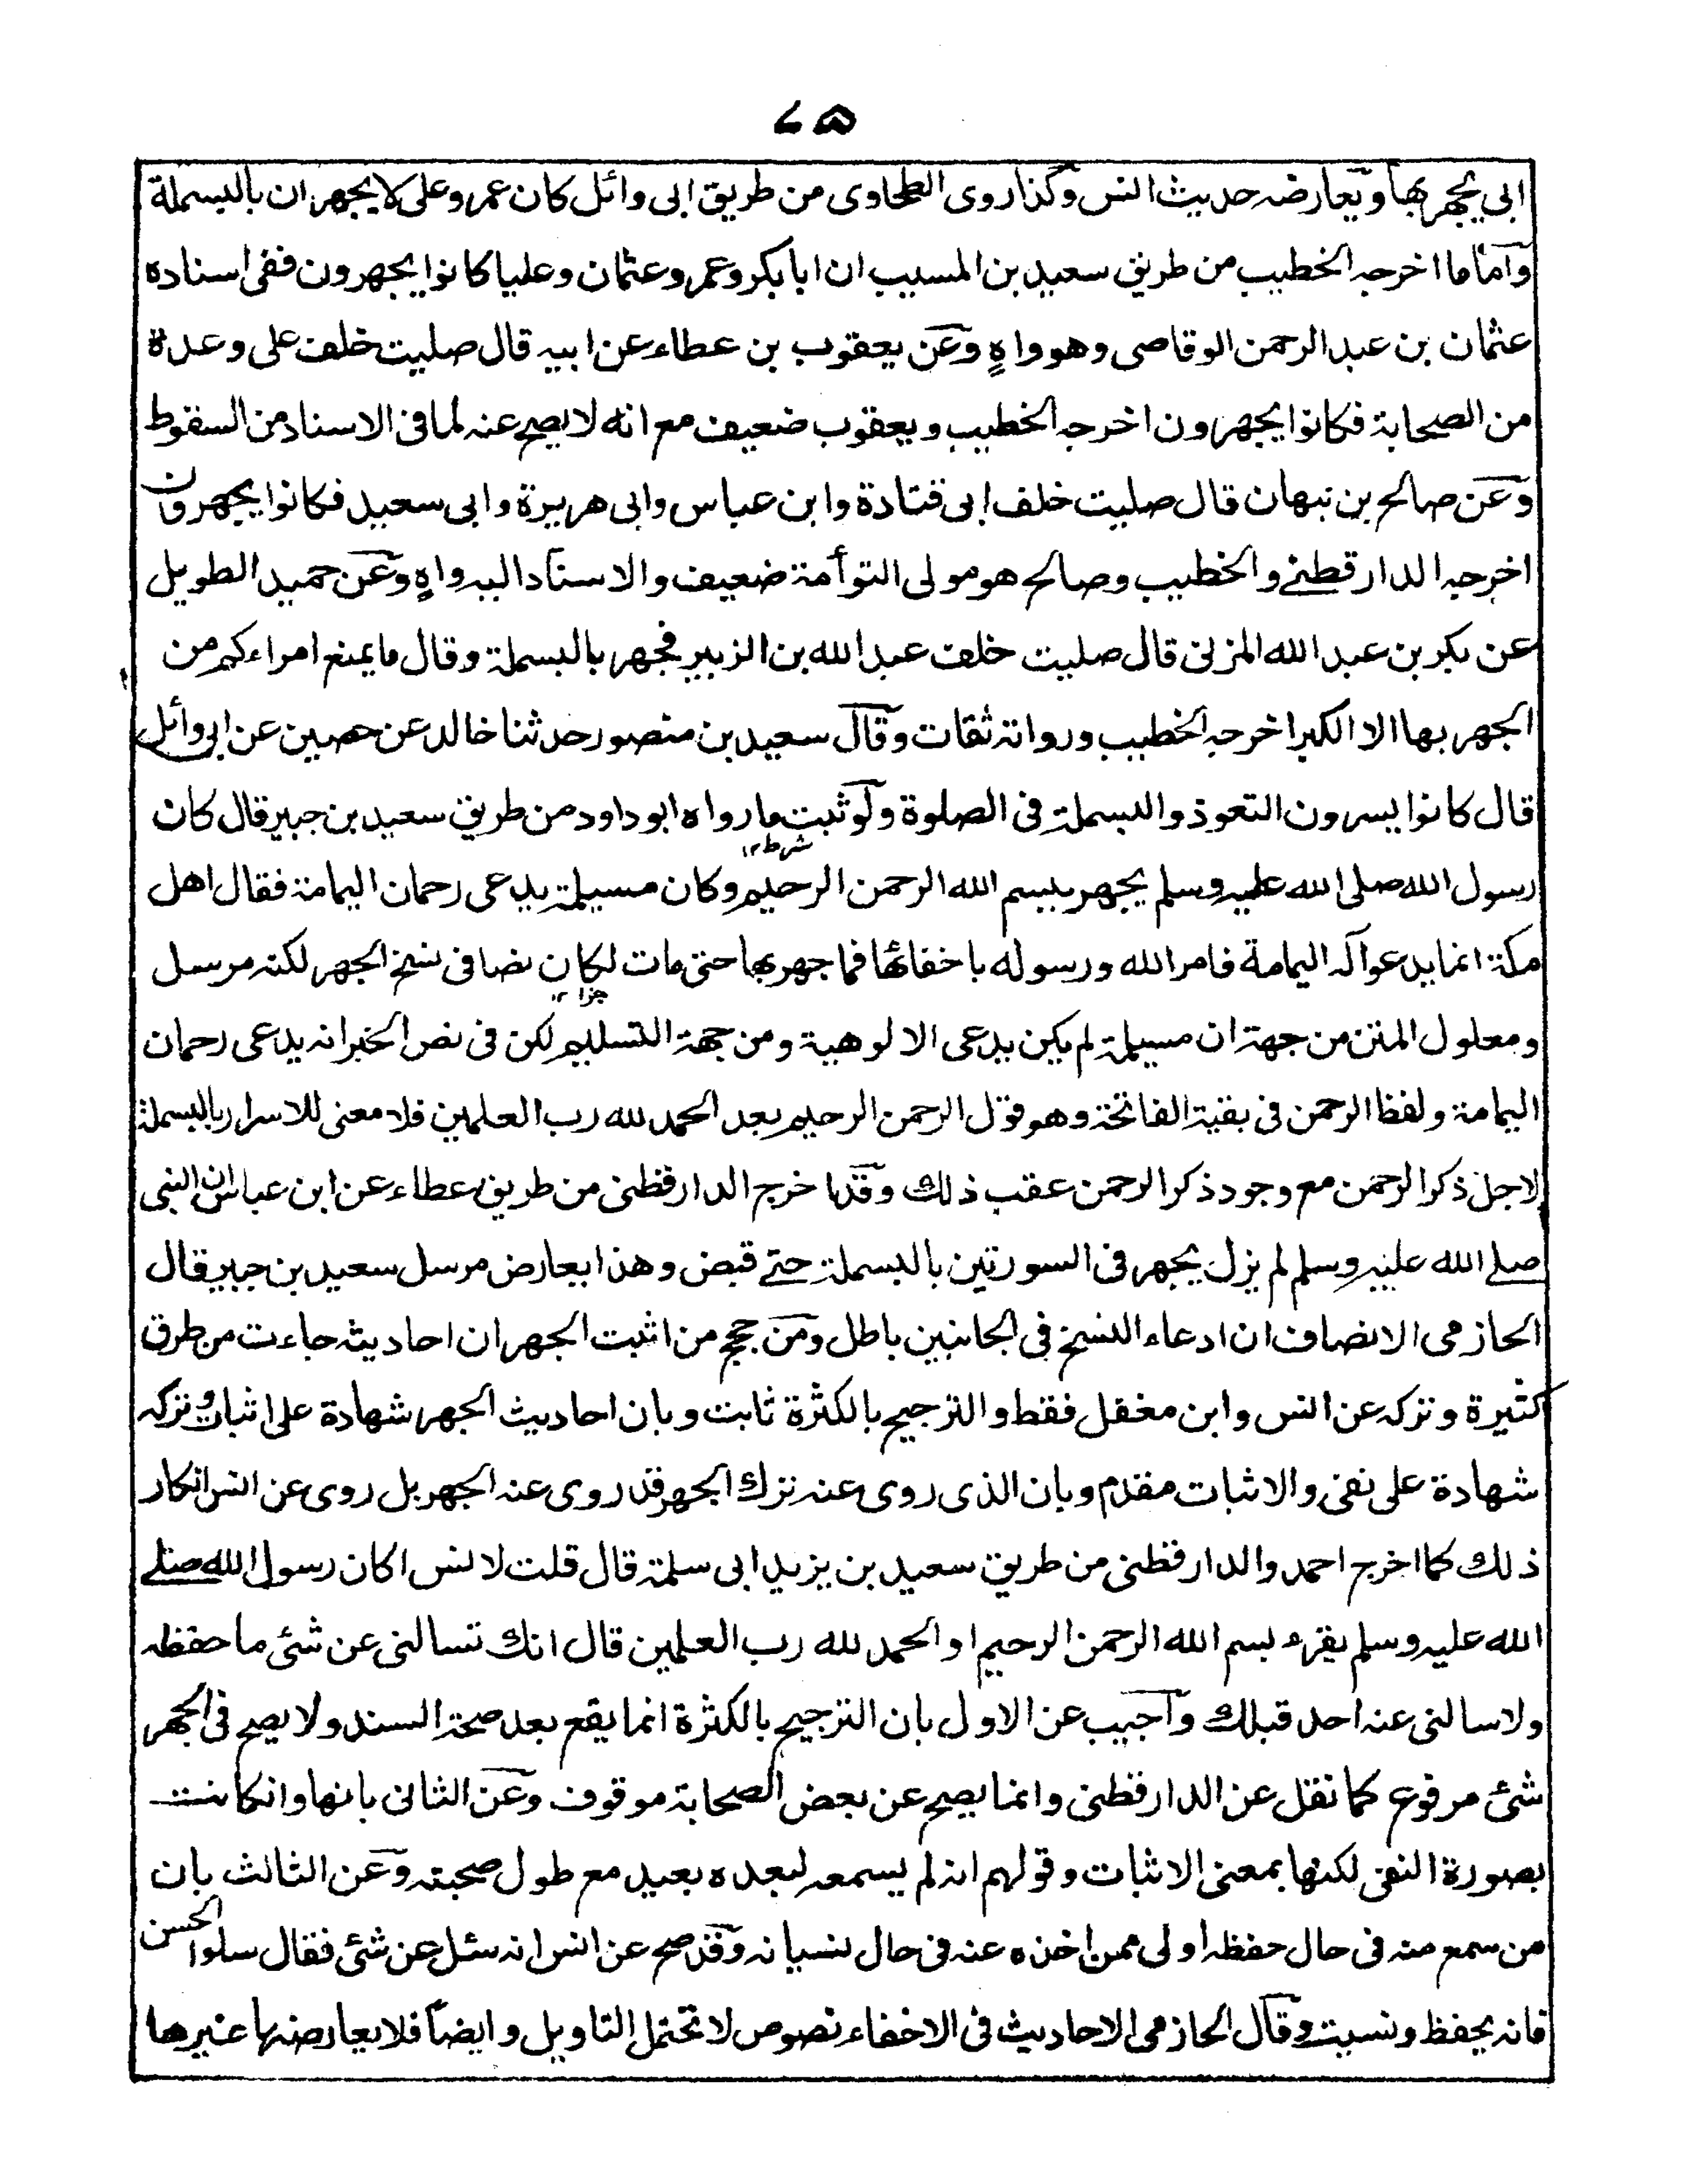 ٧٥
ابي يجهر بها ويعارضه حديث انس وكذا روى الطحاوى من طريق ابى وائل كان عمر وعلى لا يجهران بالبسملة
واما ما اخرجه الخطيب من طريق سعيد بن المسيب ان ابا بكر وعمر وعثمان وعليا كانوا يجهرون ففى اسناده
عثمان بن عبد الرحمن الوقاصى وهو واهٍ وعن يعقوب بن عطاء عن ابيه قال صليت خلف على وعدة
من الصحابة فكانوا يجهرون اخرجه الخطيب ويعقوب ضعيف مع انه لا يصح عنه لما فى الاسناد من السقوط
وعن صالح بن نبهان قال صليت خلف ابى قتادة وابن عباس وابى هريرة وابى سعيد فكانوا يجهرون
اخرجه الدارقطنے والخطيب وصالح هو مولى التوأمة ضعيف والاسناد اليه واهٍ وعن حميد الطويل
عن بكر بن عبد الله المزنى قال صليت خلف عبد الله بن الزبير فجهر بالبسملة وقال ما يمنع امراءكم من
الجهر بها الا الكبر اخرجه الخطيب ورواته ثقات وقال سعيد بن منصور حدثنا خالد عن حصين عن ابى وائل
قال كانوا يسرون التعوذ والبسملة فى الصلوة ولو ثبت ما رواه ابو داود من طريق سعيد بن جبير قال كان
شرط ١٢
رسول الله صلى الله عليه وسلم يجهر ببسم الله الرحمن الرحيم وكان مسيلمة يدعى رحمان اليمامة فقال اهل
مكة انما يدعو اله اليمامة فامر الله ورسوله باخفائها فما جهر بها حتى مات لكان نصا فى نسخ الجهر لكنه مرسل
جزا ١٢
ومعلول المتن من جهة ان مسيلمة لم يكن يدعى الالوهية ومن جهة التسليم لكن فى نص الخبر انه يدعى رحمان
اليمامة ولفظ الرحمن فى بقية الفاتحة وهو قول الرحمن الرحيم بعد الحمد لله رب العلمين فلا معنى للاسرار بالبسملة
لاجل ذكر الرحمن مع وجود ذكر الرحمن عقب ذلك وقد اخرج الدارقطنى من طريق عطاء عن ابن عباس ان النبى
صلے الله عليه وسلم لم يزل يجهر فى السورتين بالبسملة حتے قبض وهذا يعارض مرسل سعيد بن جبير قال
الحازمى الانصاف ان ادعاء النسخ فى الجانبين باطل ومن حجج من اثبت الجهر ان احاديثه جاءت من طرق
كثيرة وتركه عن انس وابن مغفل فقط والترجيح بالكثرة ثابت وبان احاديث الجهر شهادة على اثبات وتركه
شهادة على نفى والاثبات مقدم وبان الذى روى عنه ترك الجهر قد روى عنه الجهر بل روى عن انس انكار
ذلك كما اخرج احمد والدارقطنى من طريق سعيد بن يزيد ابى سلمة قال قلت لانس اكان رسول الله صلے
الله عليه وسلم يقرء بسم الله الرحمن الرحيم او الحمد لله رب العلمين قال انك تسالنى عن شئ ما حفظه
ولا سالنى عنه احد قبلك واجيب عن الاول بان الترجيح بالكثرة انما يقع بعد صحة السند ولا يصح فى الجهر
شئ مرفوع كما نقل عن الدارقطنى وانما يصح عن بعض الصحابة موقوف وعن الثانى بانها وانكانت
بصورة النفى لكنها بمعنى الاثبات وقولهم انه لم يسمعه لبعده بعيد مع طول صحبته وعن الثالث بان
من سمع منه فى حال حفظه اولى ممن اخذه عنه فى حال نسيانه وقد صح عن انس انه سئل عن شئ فقال سلوا الحسن
فانه يحفظ ونسيت وقال الحازمى الاحاديث فى الاخفاء نصوص لا تحتمل التاويل وايضاً فلا يعارضها غيرها